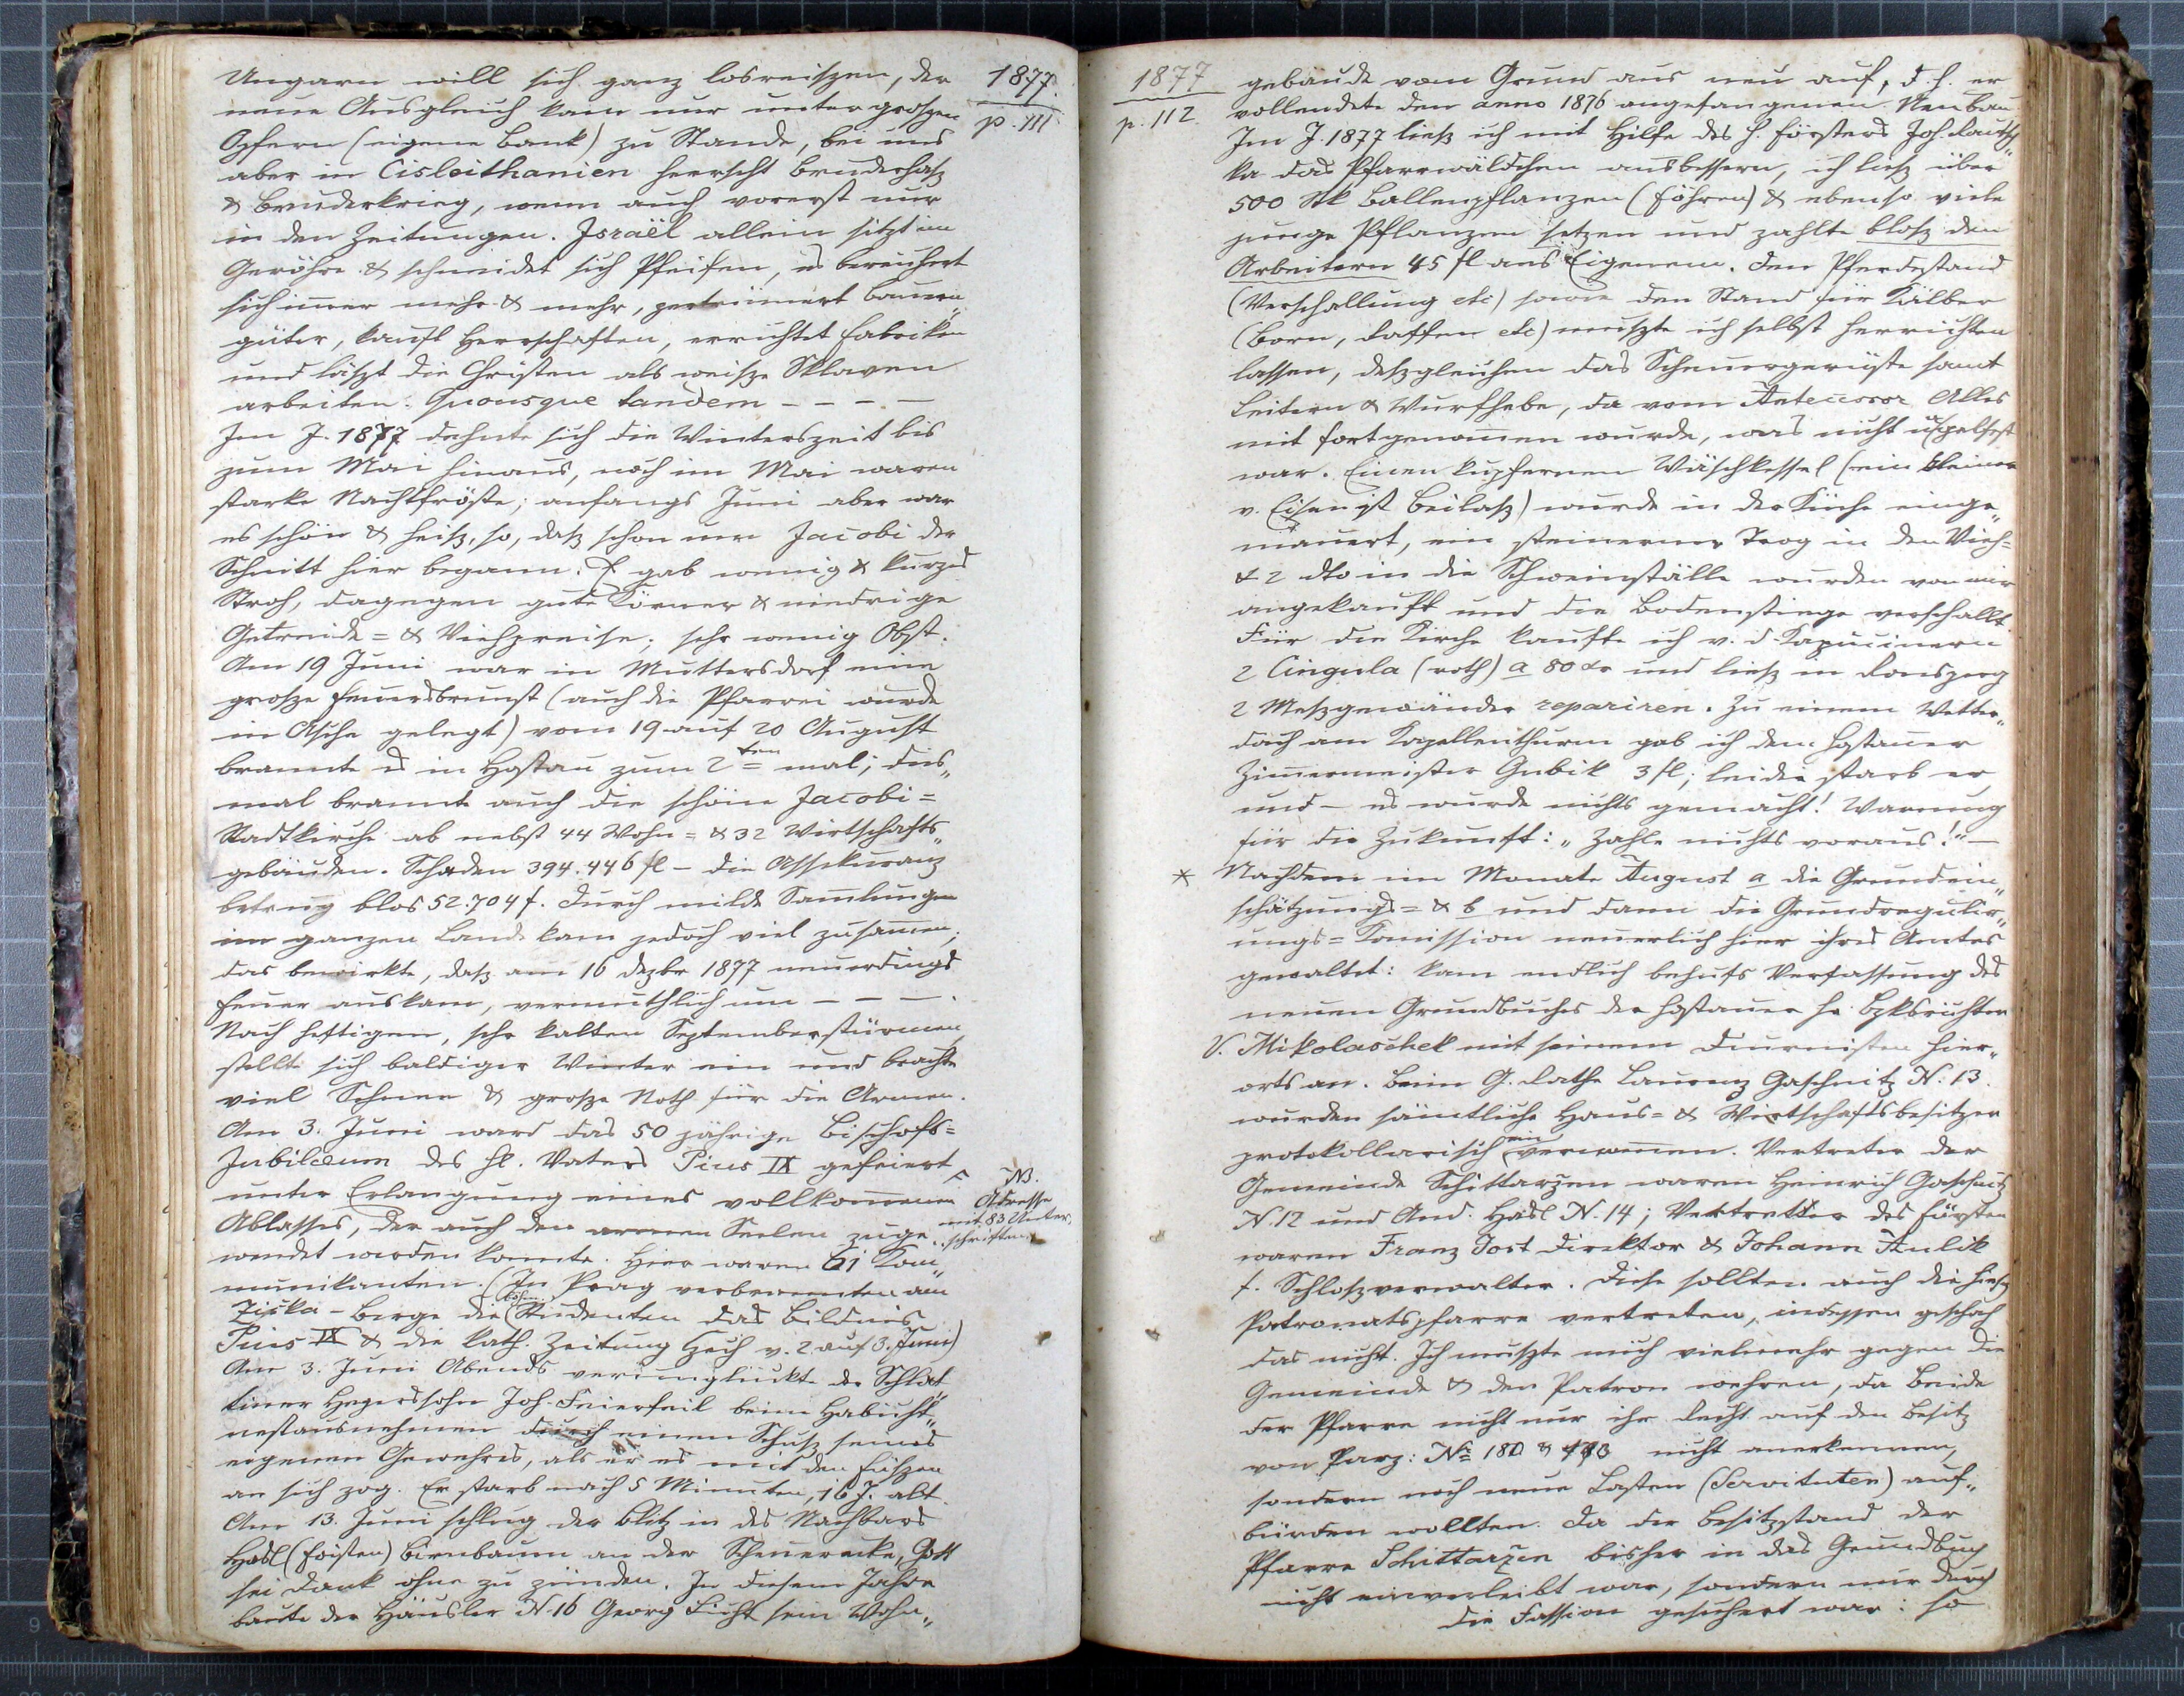 1877.
p. 111
Ungarn will sich ganz losreiszen, der
neue Ausgleich kam nur unter groszen
Opfern (eigene Bank) zu Stande, bei uns
aber in Cisleithanien herrscht Bruderhasz
& Bruderkrieg, wenn auch vorerst nur
in den Zeitungen. Israël allein sitzt im
Geröhre & schneidet sich Pfeifen, es bereichert
sich im̄er mehr & mehr, zertrüm̄ert Bauern„
güter, kauft Herrschaften, errichtet Fabriken
und läszt die Christen als weisze Sklaven
arbeiten. Quousque tandem – – – –
Im J. 1877 dehnte sich die Winterszeit bis
zum Mai hinaus, noch im Mai waren
starke Nachtfröste; anfangs Juni aber war
es schön & heisz, so, dasz schon um Jacobi der
Schnitt hier begann. Es gab wenig & kurzes
Stroh, dagegen gute Körner & niedrige
Getreide= & Viehpreise; sehr wenig Obst.
Am 19 Juni war in Muttersdorf eine
grosze Feuersbrunst (auch die Pfarrei wurde
in Asche gelegt) vom 19 auf 20 August
brannte es in Hostau zum 2ten mal; dies„
mal brannte auch die schöne Jacobi=
Stadtkirche ab nebst 44 Wohn= & 32 Wirtschafts„
gebäuden. Schaden 394.446 fl – die Assekuranz
betrug blos 52.704 f. Durch milde Sam̄lungen
im ganzen Lande kam jedoch viel zusam̄en;
das bewirkte, dasz am 16 Dezbr 1877 neuerdings
Feuer auskam, vermuthlich um – – – .
Nach heftigen, sehr kalten Septemberstürmen
stellte sich baldiger Winter ein und brachte
viel Schnee & grosze Noth für die Armen.
Am 3. Juni ward das 50 jährige Bischofs=
Jubilæum des hl. Vaters Pius IX gefeiert
unter Erlangung eines vollkom̄enen
Ablasses, der auch den armen Seelen zuge„
wendet werden konnte. Hier waren 61 Kom„
NB.
Adresse
mit 83 Unter„
schriften
munikanten. (In Prag verbrannten am
Ziska-Berge die böhm. Studenten das Bildnis
Pius IX & die kath. Zeitung Čech v. 2 auf 3. Juni)
Am 3. Juni Abends verunglückte der Schlat„
tiner Hegerssohn Joh. Feierfeil beim Habicht„
nestausnehmen durch einen Schusz seines
eigenen Gewehres, als er es mit den Füszen
an sich zog. Er starb nach 5 Minuten, 16 J. alt.
Am 13. Juni schlug der Blitz in des Nachbars
Hasl (Foisten) Birnbaum an der Scheuerecke, Gott
sei Dank ohne zu zünden. In diesem Jahre
baute der Häusler N. 16 Georg Licht sein Wohn„
1877
p. 112
gebäude vom Grund aus neu auf, d. h. er
vollendete den anno 1876 angefangenen Neubau.
Im J. 1877 liesz ich mit Hilfe des H. Försters Joh.
ka das Pfarrwäldchen ausbessern, ich liesz über
500 Stk Ballenpflanzen (Föhren) & ebenso viele
junge Pflanzen setzen und zahlte blosz den
Arbeitern 45 fl aus Eigenem. Den Pferdestand
(Verschallung etc) sowie den Stand für Kälber
(Born, Raffen etc) muszte ich selbst herrichten
lassen, deszgleichen das Scheuergerüste samt
Leitern & Wurfhebe, da vom Antecessor Alles
mit fortgenom̄en wurde, was nicht nagelfest
war. Einen kupfernen Wäschkessel (ein kleiner
v. Eisen ist Beilasz) wurde in der Küche einge„
mauert, ein steinerner Trog in den Vieh=
& 2 dto in die Schweinställe wurden von mir
angekauft und die Bodenstiege verschallt.
Für die Kirche kaufte ich v. d. Kapucinern
2 Cingula (roth) a 80 xr und liesz in Ronsperg
2 Meszgewänder repariren. Zu einem Wetter„
dach am Kapellenthurm gab ich dem Hostauer
Zim̄ermeister Gubik 3 fl; leider starb er
und – es wurde nichts gemacht! Warnung
für die Zukunft: „Zahle nichts voraus!“ –
* Nachdem im Monate August a die Grundein„
schätzungs= & b und dann die Grundregulir„
ungs=Kom̄ission neuerlich hier ihres Amtes
gewaltet: kam endlich behufs Verfassung des
neuen Grundbuches der Hostauer Hr. Bzksrichter
V. Mikolaschek mit seinem Diurnisten hier„
orts an. Beim G. Rathe Laurenz Gaschnitz N. 13
wurden sämtliche Haus= & Wirtschaftsbesitzer
protokollarisch einvernom̄en. Vertreter der
Gemeinde Schittarzen waren Heinrich Gaschnitz
N. 12 und And. Hasl N. 14; Vertretter des Fürsten
waren Franz Jost Direktor & Johann Aulik
f. Schloszverwalter. Diese sollten auch die hiesg
Patronatspfarre vertreten, indessen geschah
das nicht. Ich muszte mich vielmehr gegen die
Gemeinde & den Patron wehren, da Beide
der Pfarre nicht nur ihr Recht auf den Besitz
von Parz: No 180 & nicht anerkennen,
sondern noch neue Lasten (Servituten) auf„
bürden wollten. Da der Besitzstand der
Pfarre Schittarzen bisher in das Grundbuch
nicht einverleibt war, sondern nur durch
die Fassion gesichert war: so